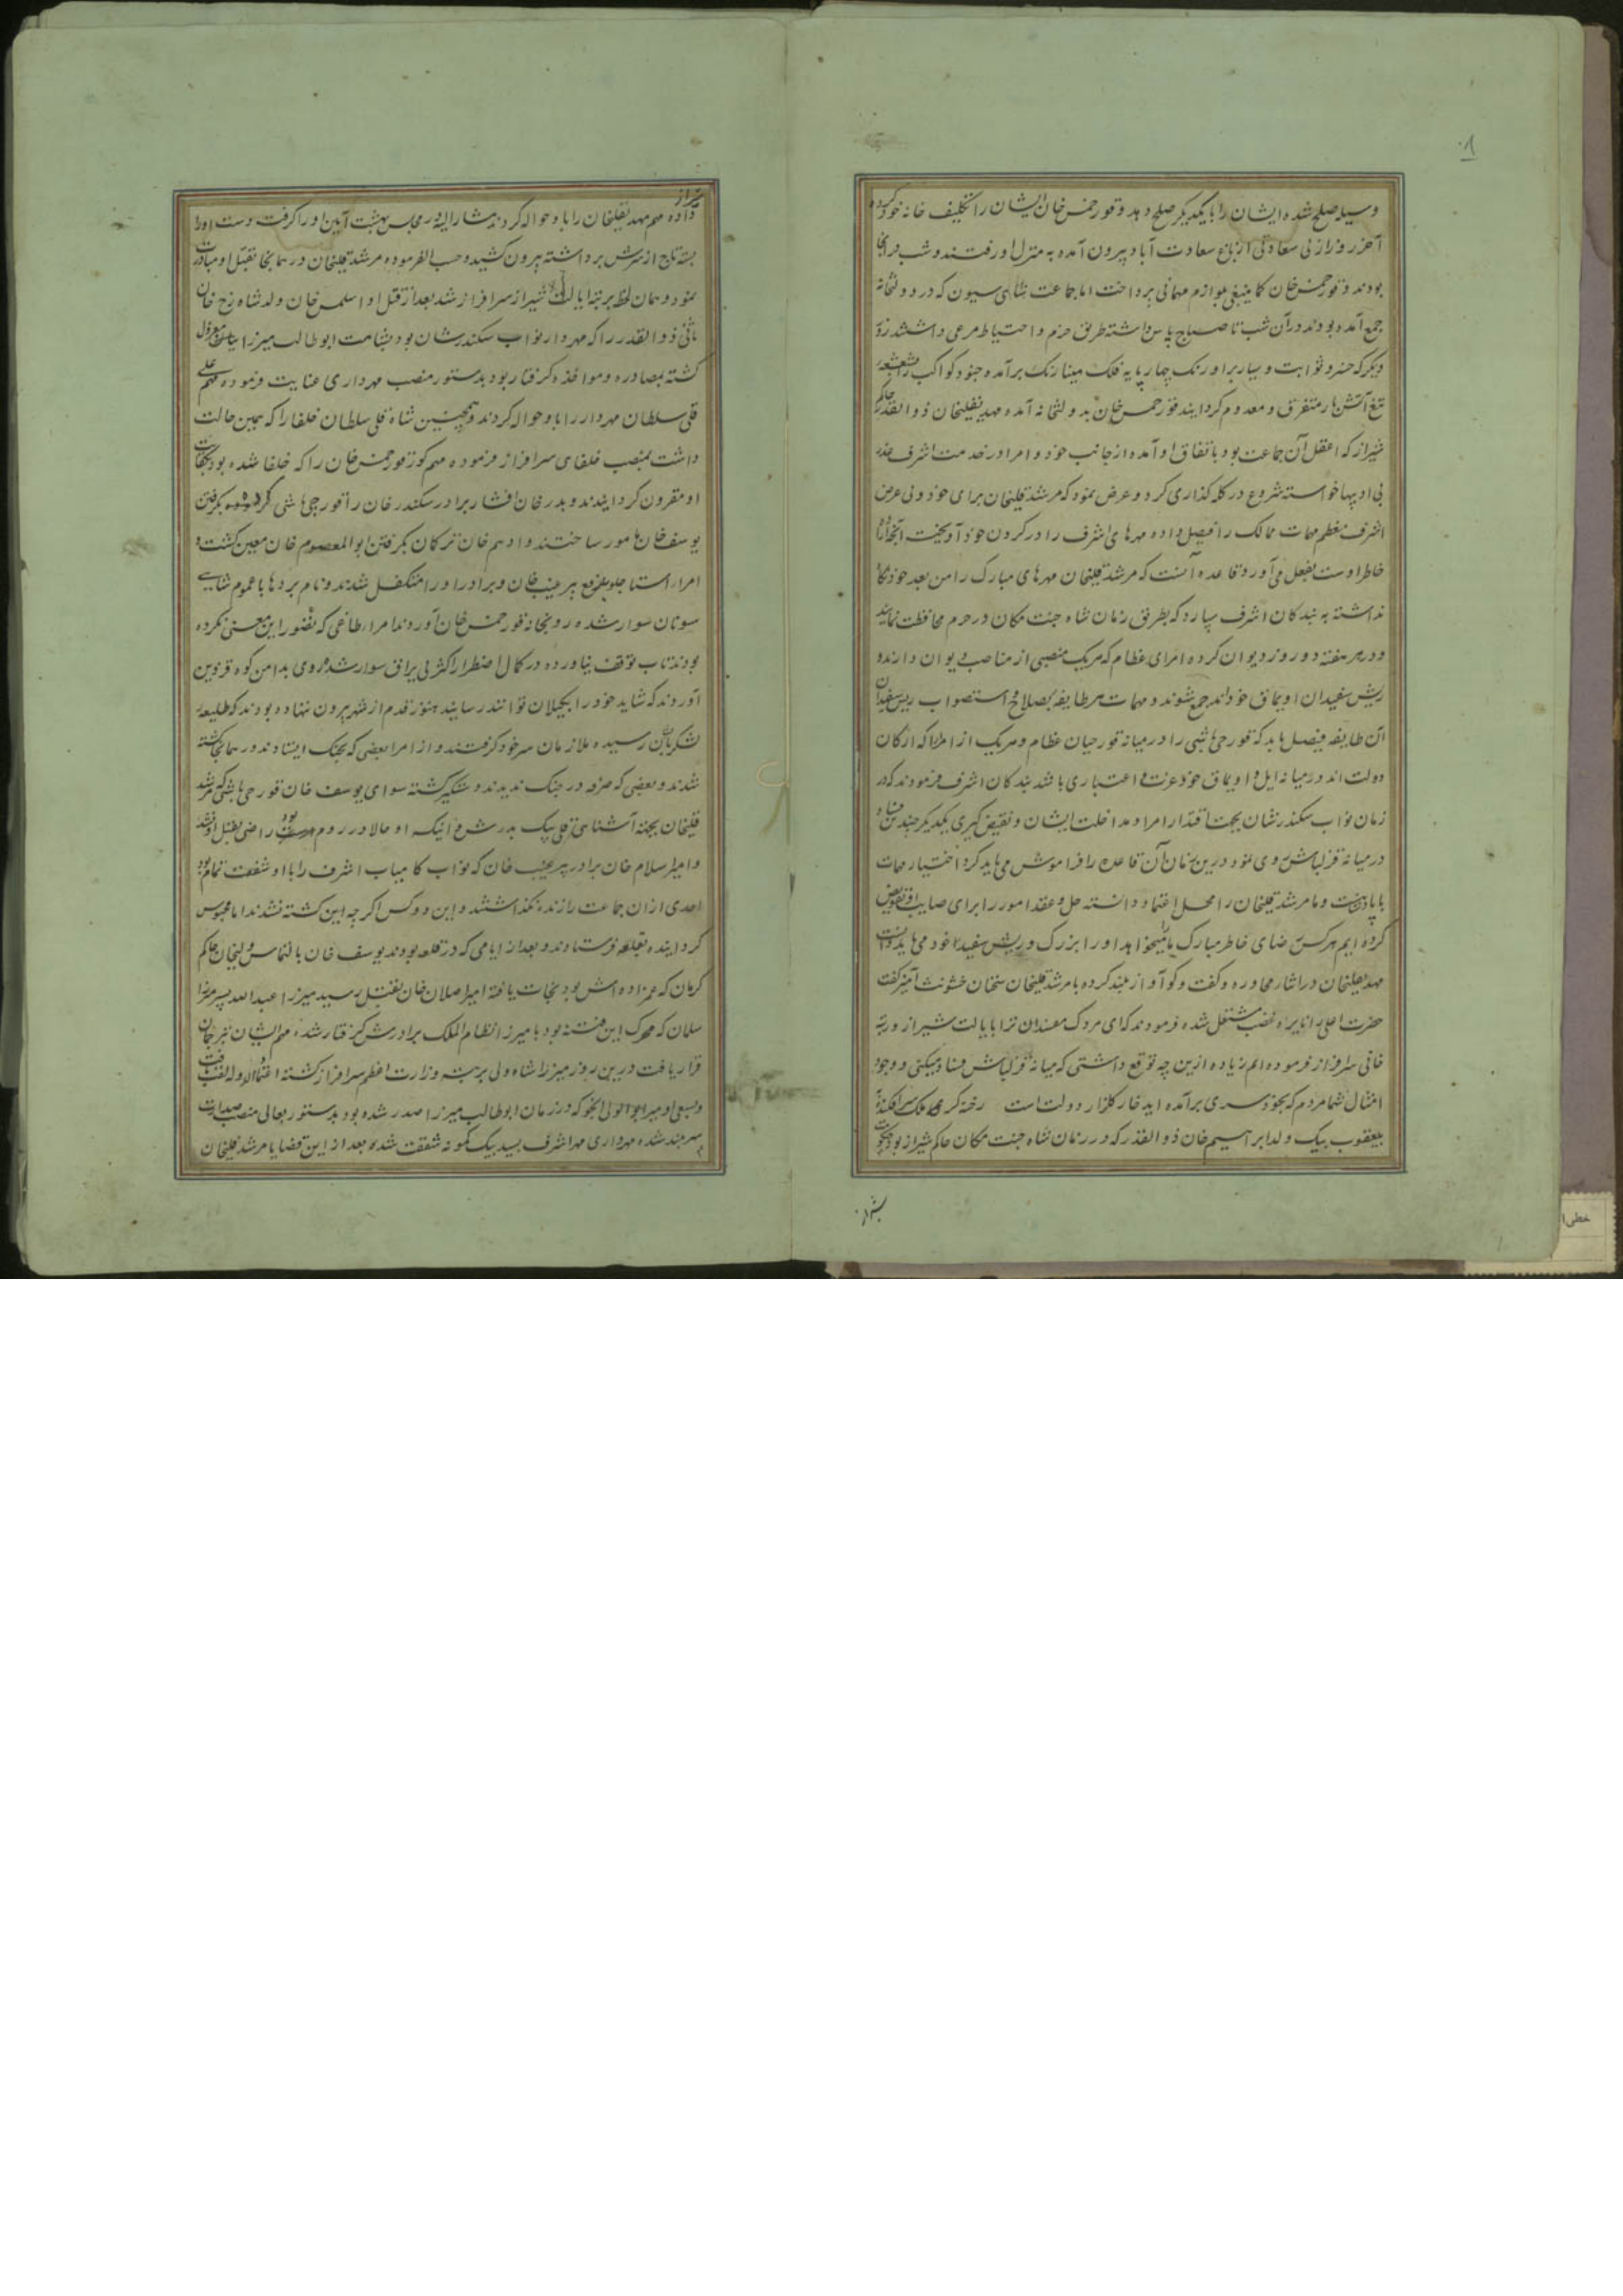 ۸۰
وسیله صلح شده ایشان را با یکدیگر صلح دهد و قورخمس خان ایشان را تکلیف خانه خود کرده
آخر روز از لی سعادتی از باغ سعادت آباد بیرون آمده به منزل او رفتند و شب در آنجا
بودند و قورخمس خان کما ینبغی بلوازم مهمانی پرداخت اما جماعت شاهی سیون که در دولتخانه
جمع آمده بودند در آن شب تا صباح پاس داشته طریق حزم و احتیاط مرعی داشتند روز
دیگر که خسرو ثوابت و سیار بر اورنک چهار پایه فلک مینا رنک برآمده جنود کواکب را بشعشعه
تیغ آتش بار متفرق و معدوم گردانید قورخمس خان بدولتخانه آمده مهدیقلیخان ذوالقدر حاکم
شیراز که اعقل آن جماعت بود باتفاق او آمده از جانب خود و امرا در خدمت اشرف
بی ادبها خواسته شروع در کله گذاری کرد و عرض نمود که مرشد قلیخان برای خود و بی عرض
اشرف معظم مهمات ممالک را فیصل داده مهرهای اشرف را در گردن خود آویخت آنچه در
خاطر اوست بفعل می آورد قاعده آنست که مرشد قلیخان مهرهای مبارک را من بعد خود نگاه
نداشته به بندکان اشرف سپارد که بطریق زمان شاه جنت مکان در حرم محافظت نمایند
و در هر هفته دو روز دیوان کرده امرای عظام که هر یک منصبی از مناصب دیوان دارند و
ریش سفیدان اویماق خودند جمع شوند و مهمات هر طایفه بصلاح و استصواب ریش سفیدان
آن طایفه فیصل یابد که قورچی باشی را در میانه قورچیان عظام و هر یک از امرا که ارکان
دولت اند در میانه ایل و اویماق خود عزت و اعتباری باشد بندکان اشرف فرمودند که در
زمان نواب سکندر شان بجهت اقتدار امرا و مداخلت ایشان و نقیض گیری یکدیگر چندین فساد
در میانه قزلباش روی نمود درین زمان آن قاعده را فراموش می باید کرد اختیار مهمات
با پادشاهست و ما مرشد قلیخان را محل اعتماد دانسته حل و عقد امور را برای صایب او تفویض
کرده ایم هر کس رضای خاطر مبارک ما میخواهد او را بزرگ و ریش سفید خود می باید دانست
مهدیقلیخان در اثنار محاوره و گفت و گو آواز بلند کرده با مرشد قلیخان سخنان خشونت آمیز گفت
حضرت اعلی را نایره غضب مشتعل شده فرمودند که ای مردک مفسدان ترا بایالت شیراز و رتبه
خانی سرافراز فرموده ام زیاده ازین چه توقع داشتی که میانه قزلباش فساد میکنی و وجود
امثال شما مردم که بخود سری برآمده اید خار گلزار دولت است رخنه گر ملک سر افکنده به
بیعقوب بیک ولد ابراهیم خان ذوالقدر که در زمان شاه جنت مکان حاکم شیراز بود
شیراز
شیراز
داده مهم مهدیقلیخان را باو حواله کردند مشار الیه در مجلس بهشت آیین او را گرفت دست او را
بسته تاج از سرش برداشته بیرون کشید و حسب الفرموده مرشد قلیخان در همانجا بقتل او مبادرت
نمود و همان لحظه برتبه ایالت شیراز سرافراز شد بعد از قتل او اسلمس خان ولد شاهرخ خان
ثانی ذوالقدر را که مهردار نواب سکندر شان بود بشامت ابوطالب میرزا بیائی معزول
گشته بمصادره و مواخذه گرفتار بود بدستور منصب مهرداری عنایت فرموده مهم علی
قلی سلطان مهردار را باو حواله کردند و همچنین شاه قلی سلطان خلفا را که همین حالت
داشت بمنصب خلفای سرافراز فرموده مهم قورخمس خان را که خلفا شده بود بکفایت
او مقرون گردانیدند و بدر خان افشار برادر سکندر خان را قورچی باشی کرده بگرفتن
یوسف خان مامور ساختند و ادهم خان ترکمان بگرفتن ابوالمعصوم خان معین گشت و
امرار استاجلو بدفع پیر غیب خان و برادر او را متکفل شدند و نام برده ها با عموم شاهی
سونان سوار شده رو بخانه قورخمس خان آوردند امرار طاغی که تصور این معنی نکرده
بودند تاب توقف نیاورده در کمال اضطرار اکثر بی یراق سوار شده روی بدامن کوه قزوین
آوردند که شاید خود را بگیلان توانند رسانید هنوز قدم از شهر بیرون نهاده بودند که طلیعه
لشکر بدیشان رسیده ملازمان سر خود گرفتند و از امرا بعضی که بجنک ایستادند در همانجا کشته
شدند و بعضی که صرفه در جنک ندیدند دستگیر گشته سوای یوسف خان قورچی باشی که مرشد
قلیخان بجهته آشنایی قلی بیک پدرش و آنیکه او حالا در روم بود راضی بقتل او نشد
و امیر اسلام خان برادر پیر غیب خان که نواب کامیاب اشرف را با او شفقت تمام بود
احدی از آن جماعت را زنده نگذاشتند و این دو کس اگر چه این کشته نشدند اما محبوس
گردانیده بقلعه فرستادند و بعد از ایامی که در قلعه بودند یوسف خان بالتماس ولیخان حاکم
کرمان که عمزاده اش بود نجات یافته امیر اصلان خان بقتل رسید میرزا عبدالله پسر میرزا
سلمان که محرک این فتنه بود با میرزا نظام الملک برادرش گرفتار شده مهم ایشان بترجمان
قرار یافت درین روز میرزا شاه ولی برتبه وزارت اعظم سرافراز گشته اعتماد الدوله لقب یافت
و بسعی او میر ابوالولی انجو که در زمان ابوطالب میرزا صدر شده بود بدستور بعالی منصب صدارت
سربلند شده مهرداری مهر اشرف بسید بیک کمونه شفقت شد و بعد از این قضایا مرشد قلیخان
خطی ا